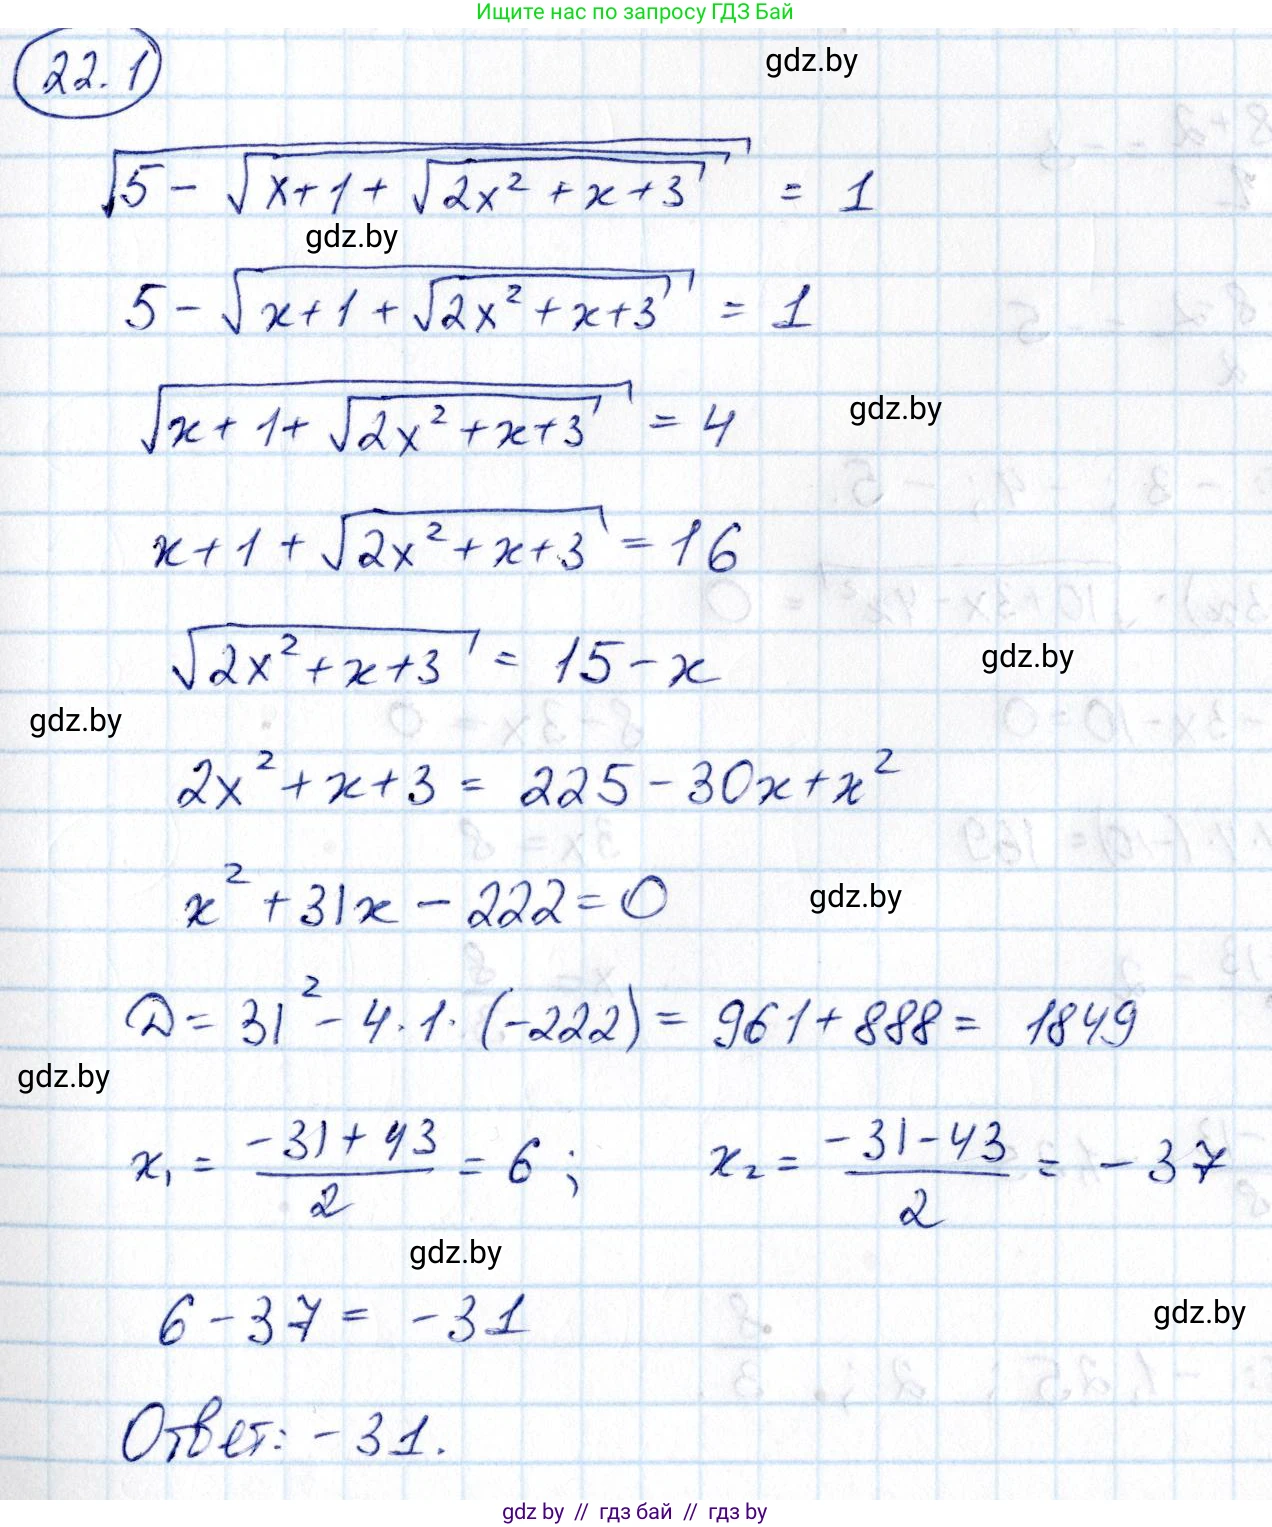 Ищите нас по запросу ГДЗ Бай
22.1
gdz.by
√(5 - √(x+1+√(2x² + x + 3))) = 1
gdz.by
5 - √(x+1+√(2x² + x+3)) = 1
√(x+1+√(2x² + x+3)) = 4
gdz.by
x+1+√(2x² + x+3) = 16
√(2x² + x+3) = 15 - x
gdz.by
gdz.by
2x² + x+3 = 225 - 30x + x²
x² + 31x - 222 = 0
gdz.by
D = 31² - 4·1·(-222) = 961 + 888 = 1849
gdz.by
x₁ = (-31+43)/2 = 6; x₂ = (-31-43)/2 = -37
gdz.by
6 - 37 = -31
gdz.by
Ответ: -31.
gdz by // гдз бай // гдз by